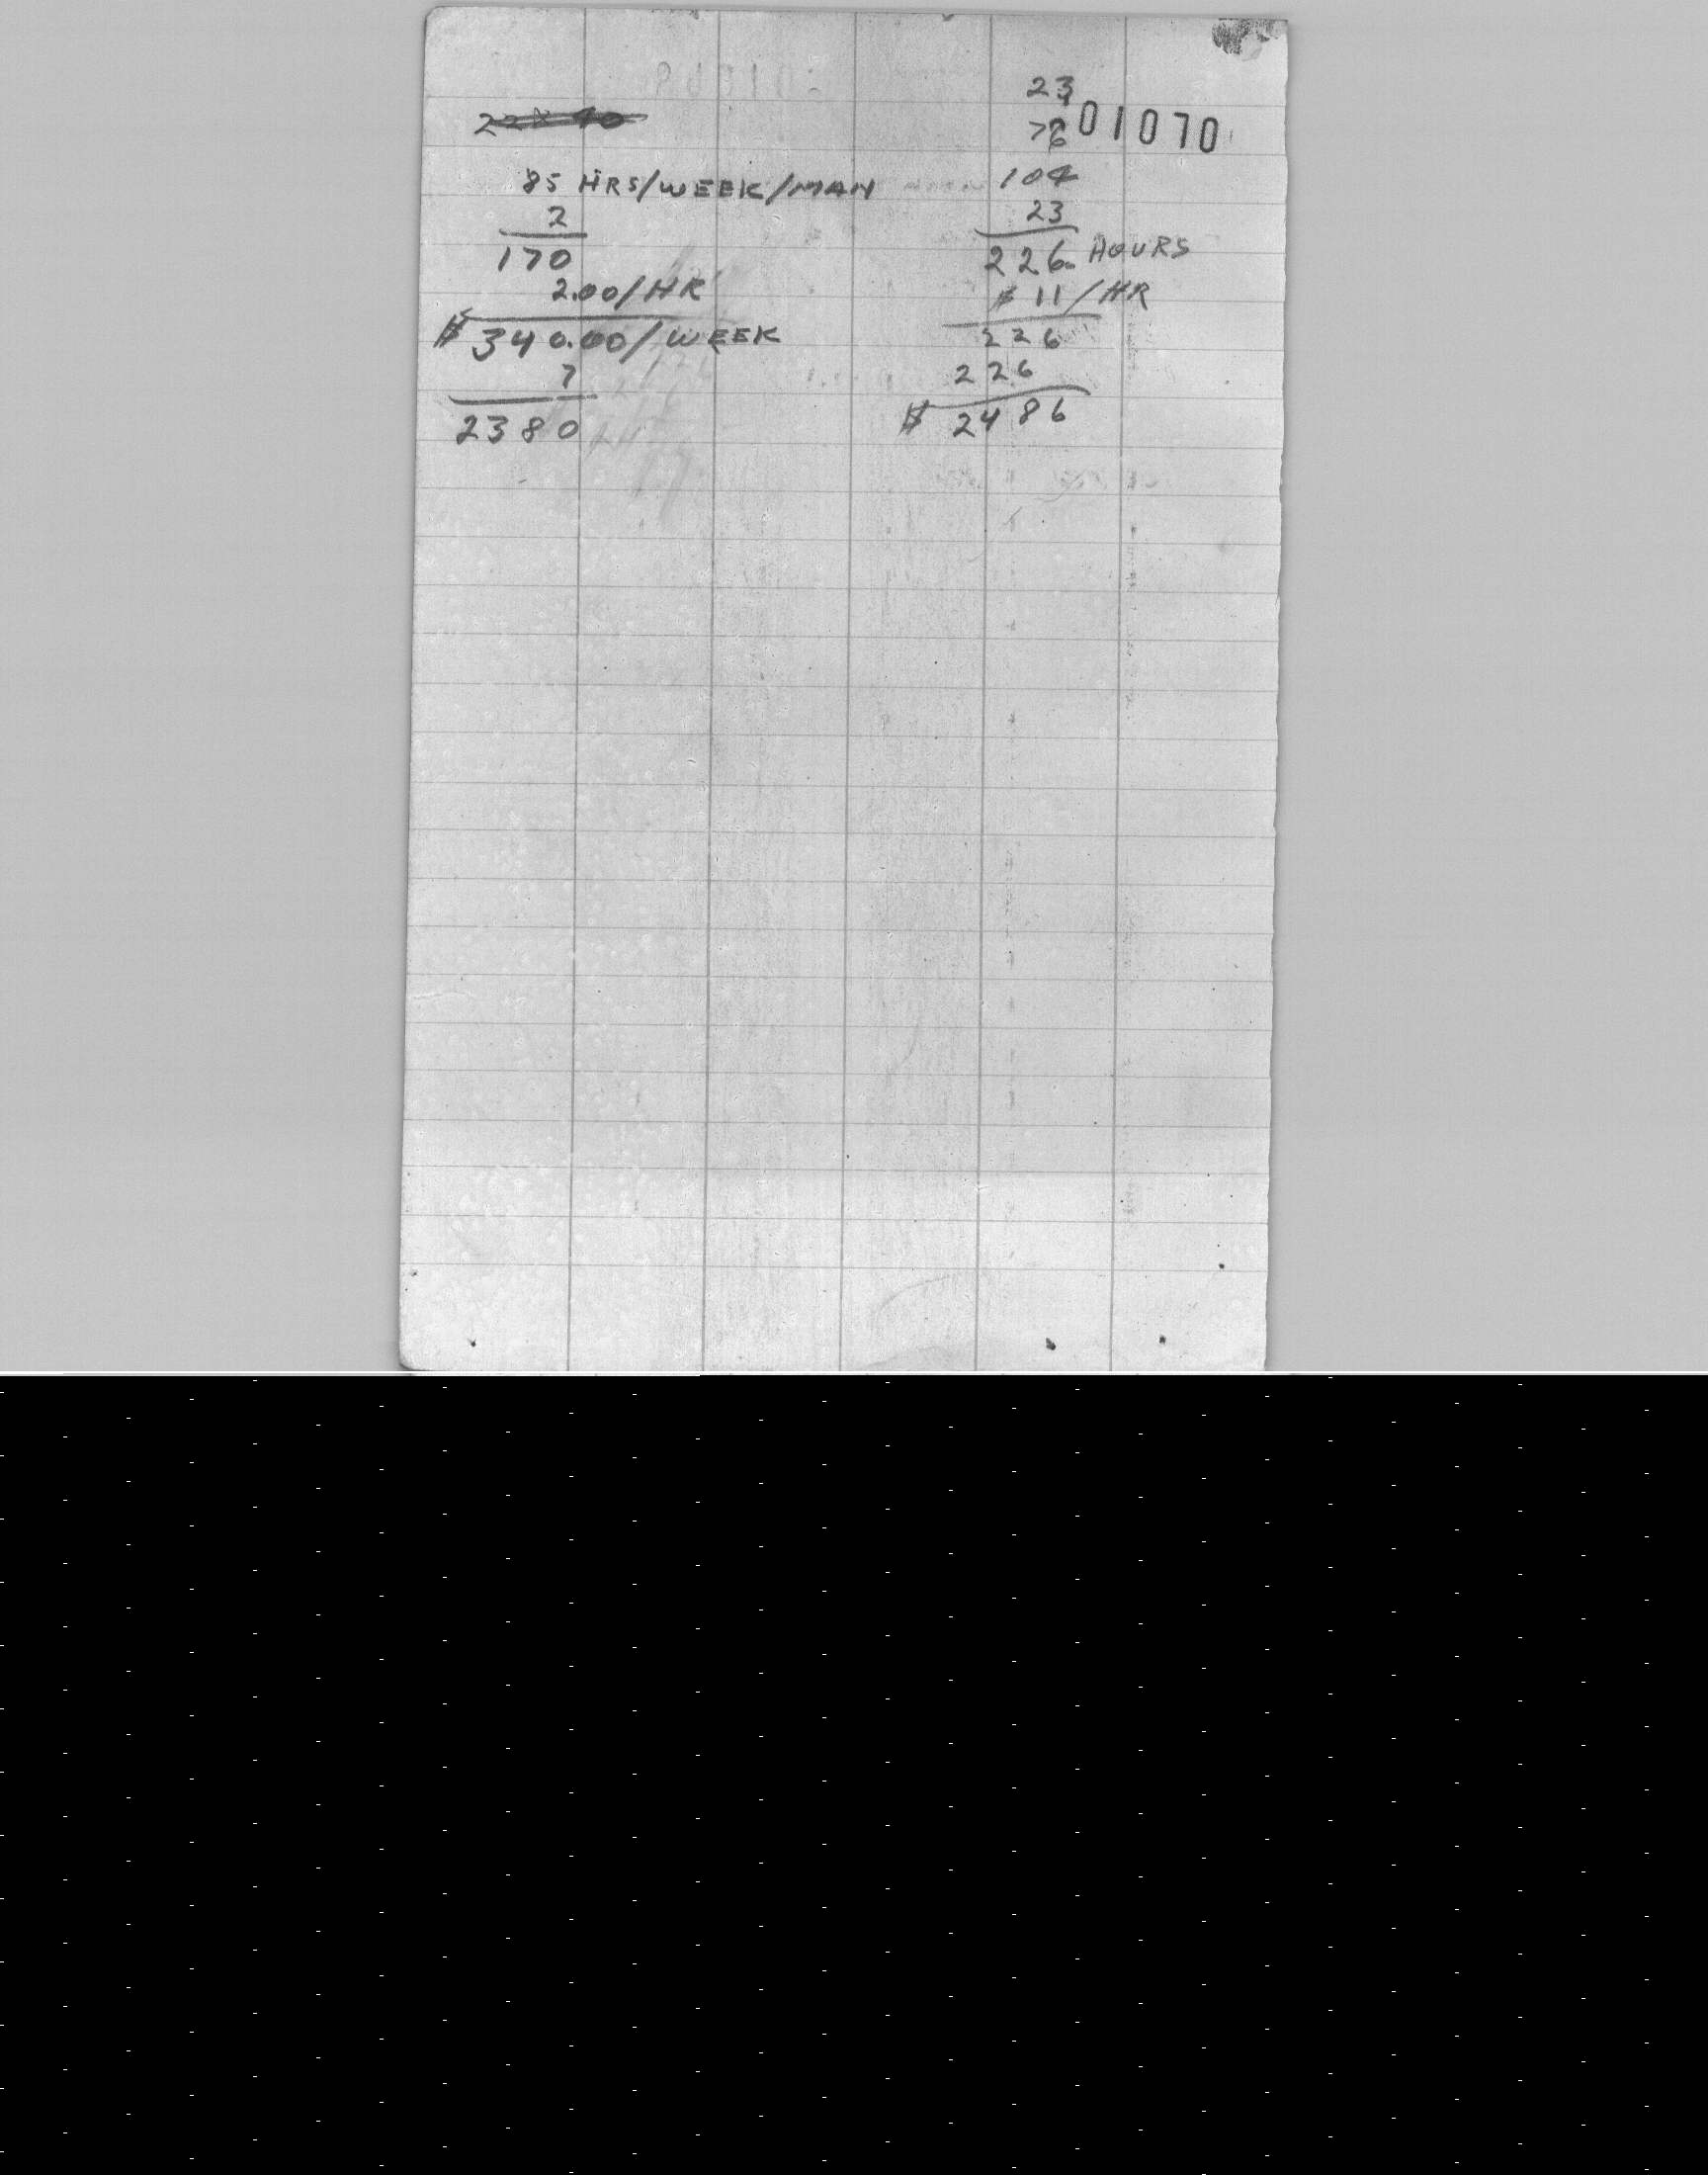 85 HRS/WEEK/MAN
2
170
2.00/HR
$340.00/WEEK
7
2380
23
76
104
23
226 HOURS
$11/HR
226
226
$2486
01070